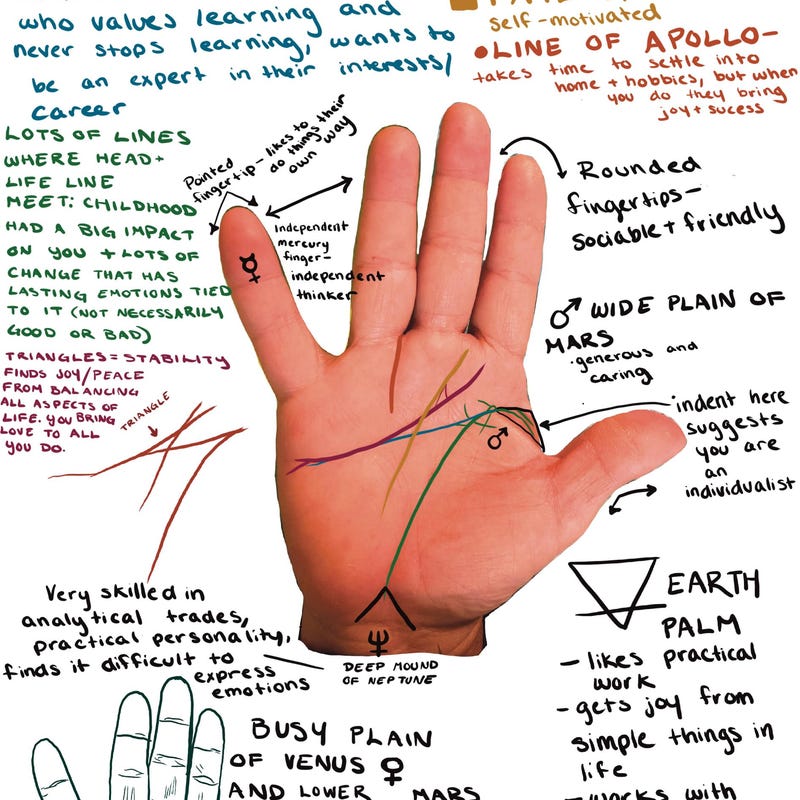 who values learning and
never stops learning, wants to
be an expert in their interests/
career
self-motivated
•LINE OF APOLLO-
takes time to settle into
home + hobbies, but when
you do they bring
joy + sucess
LOTS OF LINES
WHERE HEAD+
LIFE LINE
MEET: CHILDHOOD
HAD A BIG IMPACT
ON YOU + LOTS OF
CHANGE THAT HAS
LASTING EMOTIONS TIED
TO IT (NOT NECESSARILY
GOOD OR BAD)
Pointed
fingertip - likes to
do things their
own way
Independent
mercury
finger-
independent
thinker
Rounded
fingertips-
sociable + friendly
♂ WIDE PLAIN OF
MARS
·generous and
caring
TRIANGLES = STABILITY
FINDS JOY/PEACE
FROM BALANCING
ALL ASPECTS OF
LIFE. YOU BRING
LOVE TO ALL
YOU DO.
TRIANGLE
indent here
suggests
you are
an
individualist
Very skilled in
analytical trades,
practical personality,
finds it difficult to
express
emotions
DEEP MOUND
OF NEPTUNE
EARTH
PALM
- likes practical
work
- gets joy from
simple things in
life
- works with
BUSY PLAIN
OF VENUS ♀
AND LOWER MARS